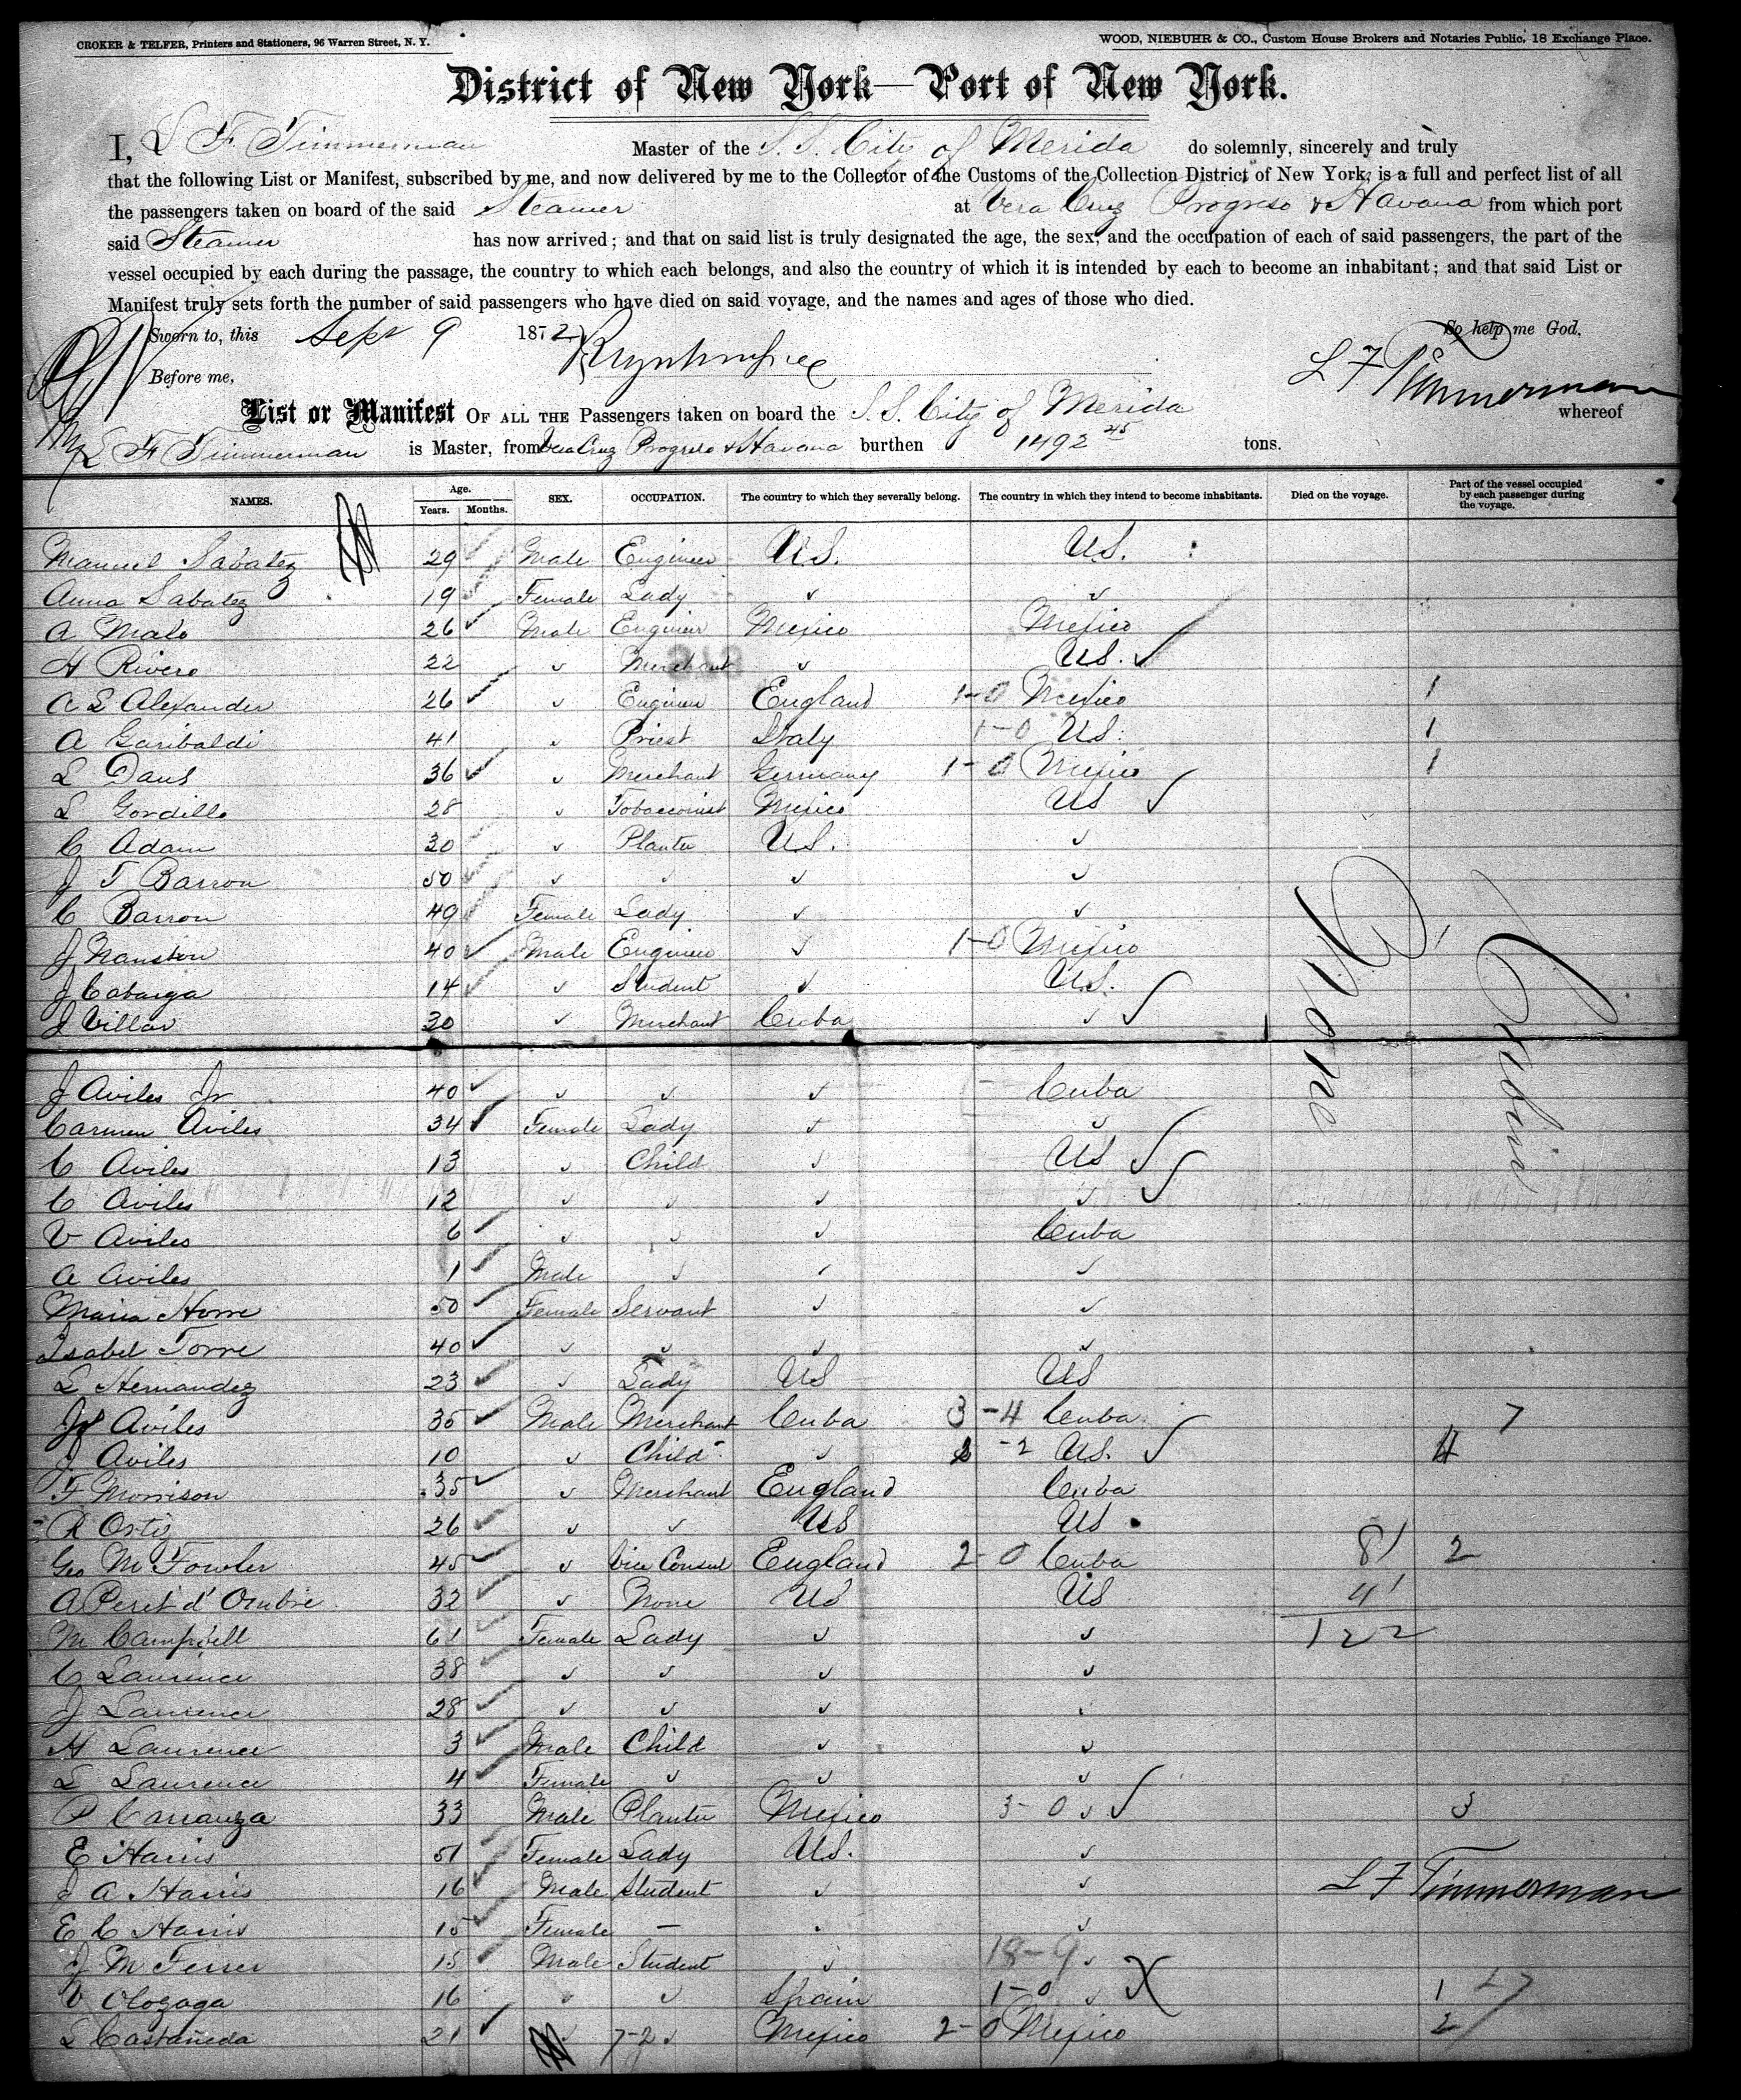 CROKER & TELFER, Printers and Stationers, 96 Warren Street, N. Y.
WOOD, NIEBUHR & CO., Custom House Brokers and Notaries Public, 18 Exchange Place.
District of New York—Port of New York.
I, L F Timmerman Master of the S. S. City of Merida do solemnly, sincerely and truly
that the following List or Manifest, subscribed by me, and now delivered by me to the Collector of the Customs of the Collection District of New York, is a full and perfect list of all
the passengers taken on board of the said Steamer at Vera Cruz Progreso & Havana from which port
said Steamer has now arrived; and that on said list is truly designated the age, the sex, and the occupation of each of said passengers, the part of the
vessel occupied by each during the passage, the country to which each belongs, and also the country of which it is intended by each to become an inhabitant; and that said List or
Manifest truly sets forth the number of said passengers who have died on said voyage, and the names and ages of those who died.
Sworn to, this Sept 9 1872 So help me God,
Before me, L F Timmerman
List or Manifest OF ALL THE Passengers taken on board the S. S. City of Merida whereof
L F Timmerman is Master, from Vera Cruz Progreso & Havana burthen 1492 45 tons.
NAMES. Age. Years. Months. SEX. OCCUPATION. The country to which they severally belong. The country in which they intend to become inhabitants. Died on the voyage. Part of the vessel occupied by each passenger during the voyage.
Manuel Sabatez 29 Male Engineer U.S. U.S.
Anna Sabatez 19 Female Lady
A Malo 26 Male Engineer Mexico Mexico
H Rivero 22 Merchant US.
A L Alexander 26 Engineer England 1-0 Mexico 1
A Garibaldi 41 Priest Italy 1-0 US. 1
L Daus 36 Merchant Germany 1-0 Mexico 1
L Gordillo 28 Tobacconist Mexico US
C Adam 30 Planter U.S.
J T Barron 50
C Barron 49 Female Lady
J Nanston 40 Male Engineer 1-0 Mexico 1
J Cabarga 14 Student U.S.
J Villar 30 Merchant Cuba
None
Cabin
J Aviles Jr 40 Cuba
Carmen Aviles 34 Female Lady
C Aviles 13 Child US
C Aviles 12
V Aviles 6 Cuba
A Aviles 1 Male
Maria Horre 50 Female Servant
Isabel Torre 40
L Hernandez 23 Lady US US
J Aviles 35 Male Merchant Cuba 3-4 Cuba 7
J Aviles 10 Child -2 US. 4
F Morrison 35 Merchant England Cuba
R Ortiz 26 US US
Geo M Fowler 45 Vice Consul England 2-0 Cuba 81 2
A Peret d' Ombre 32 None US US 41
M Campbell 61 Female Lady 122
C Laurence 38
J Laurence 28
H Laurence 3 Male Child
L Laurence 4 Female
P Carranza 33 Male Planter Mexico 3-0 3
E Harris 51 Female Lady U.S.
J A Harris 16 Male Student L F Timmerman
E C Harris 15 Female —
J M Ferrer 15 Male Student 18-9
V Olozaga 16 Spain 1-0 1
L Castañeda 21 7-2 Mexico 2-0 Mexico 2